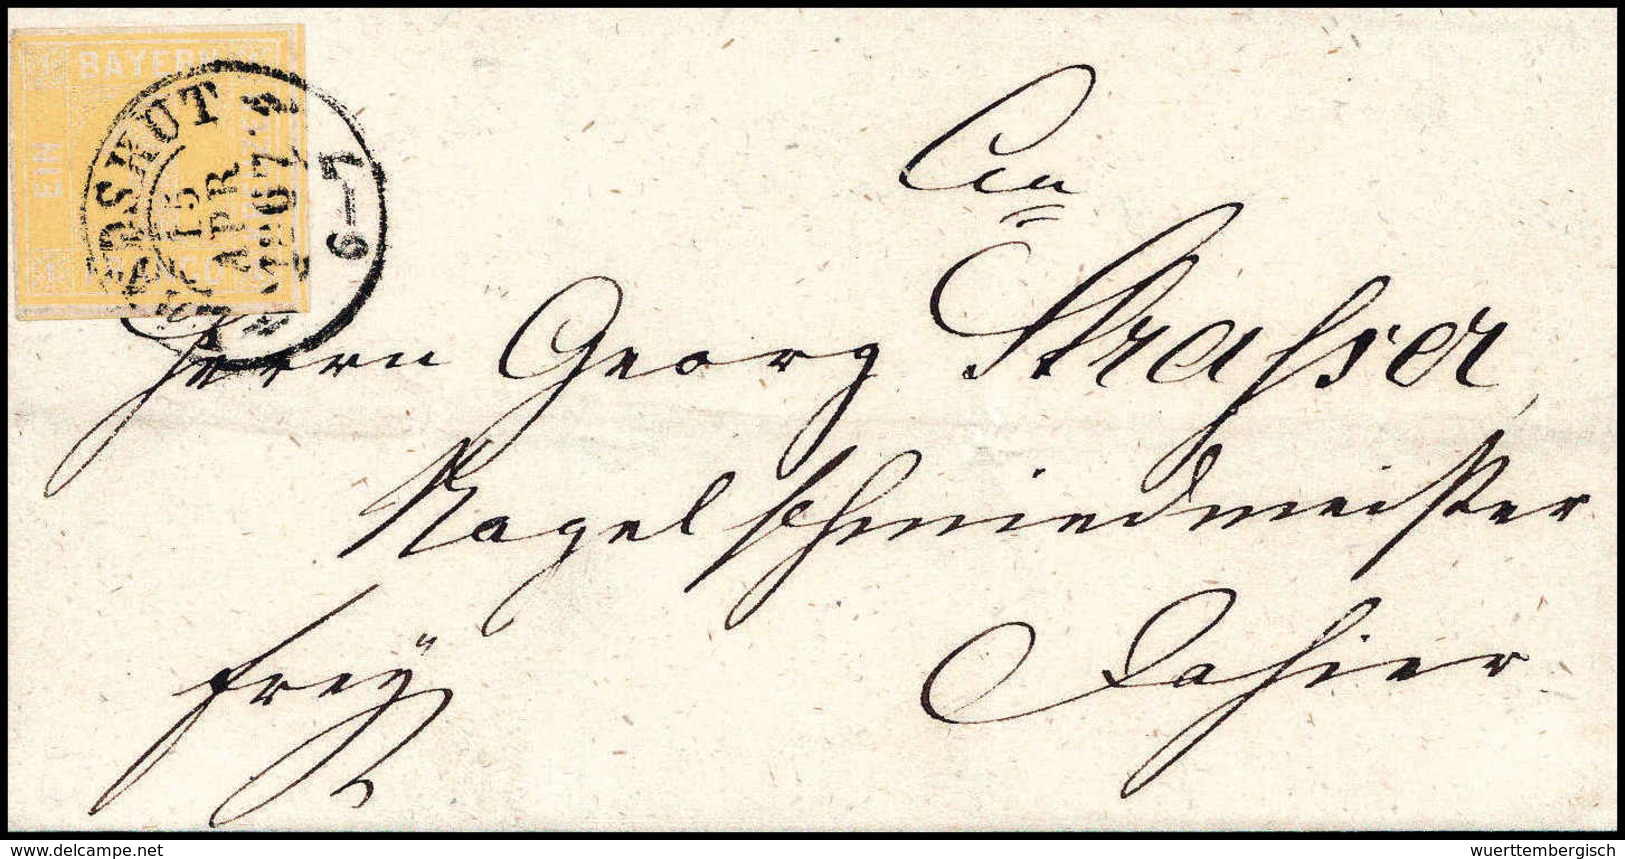 BAYERN
EIN
LANDSHUT
15
APR
1867
6-7
An
Herrn Georg Strasser,
Nagelschmiedmeister
frey
Dahier
www.delcampe.net
wuerttembergisch